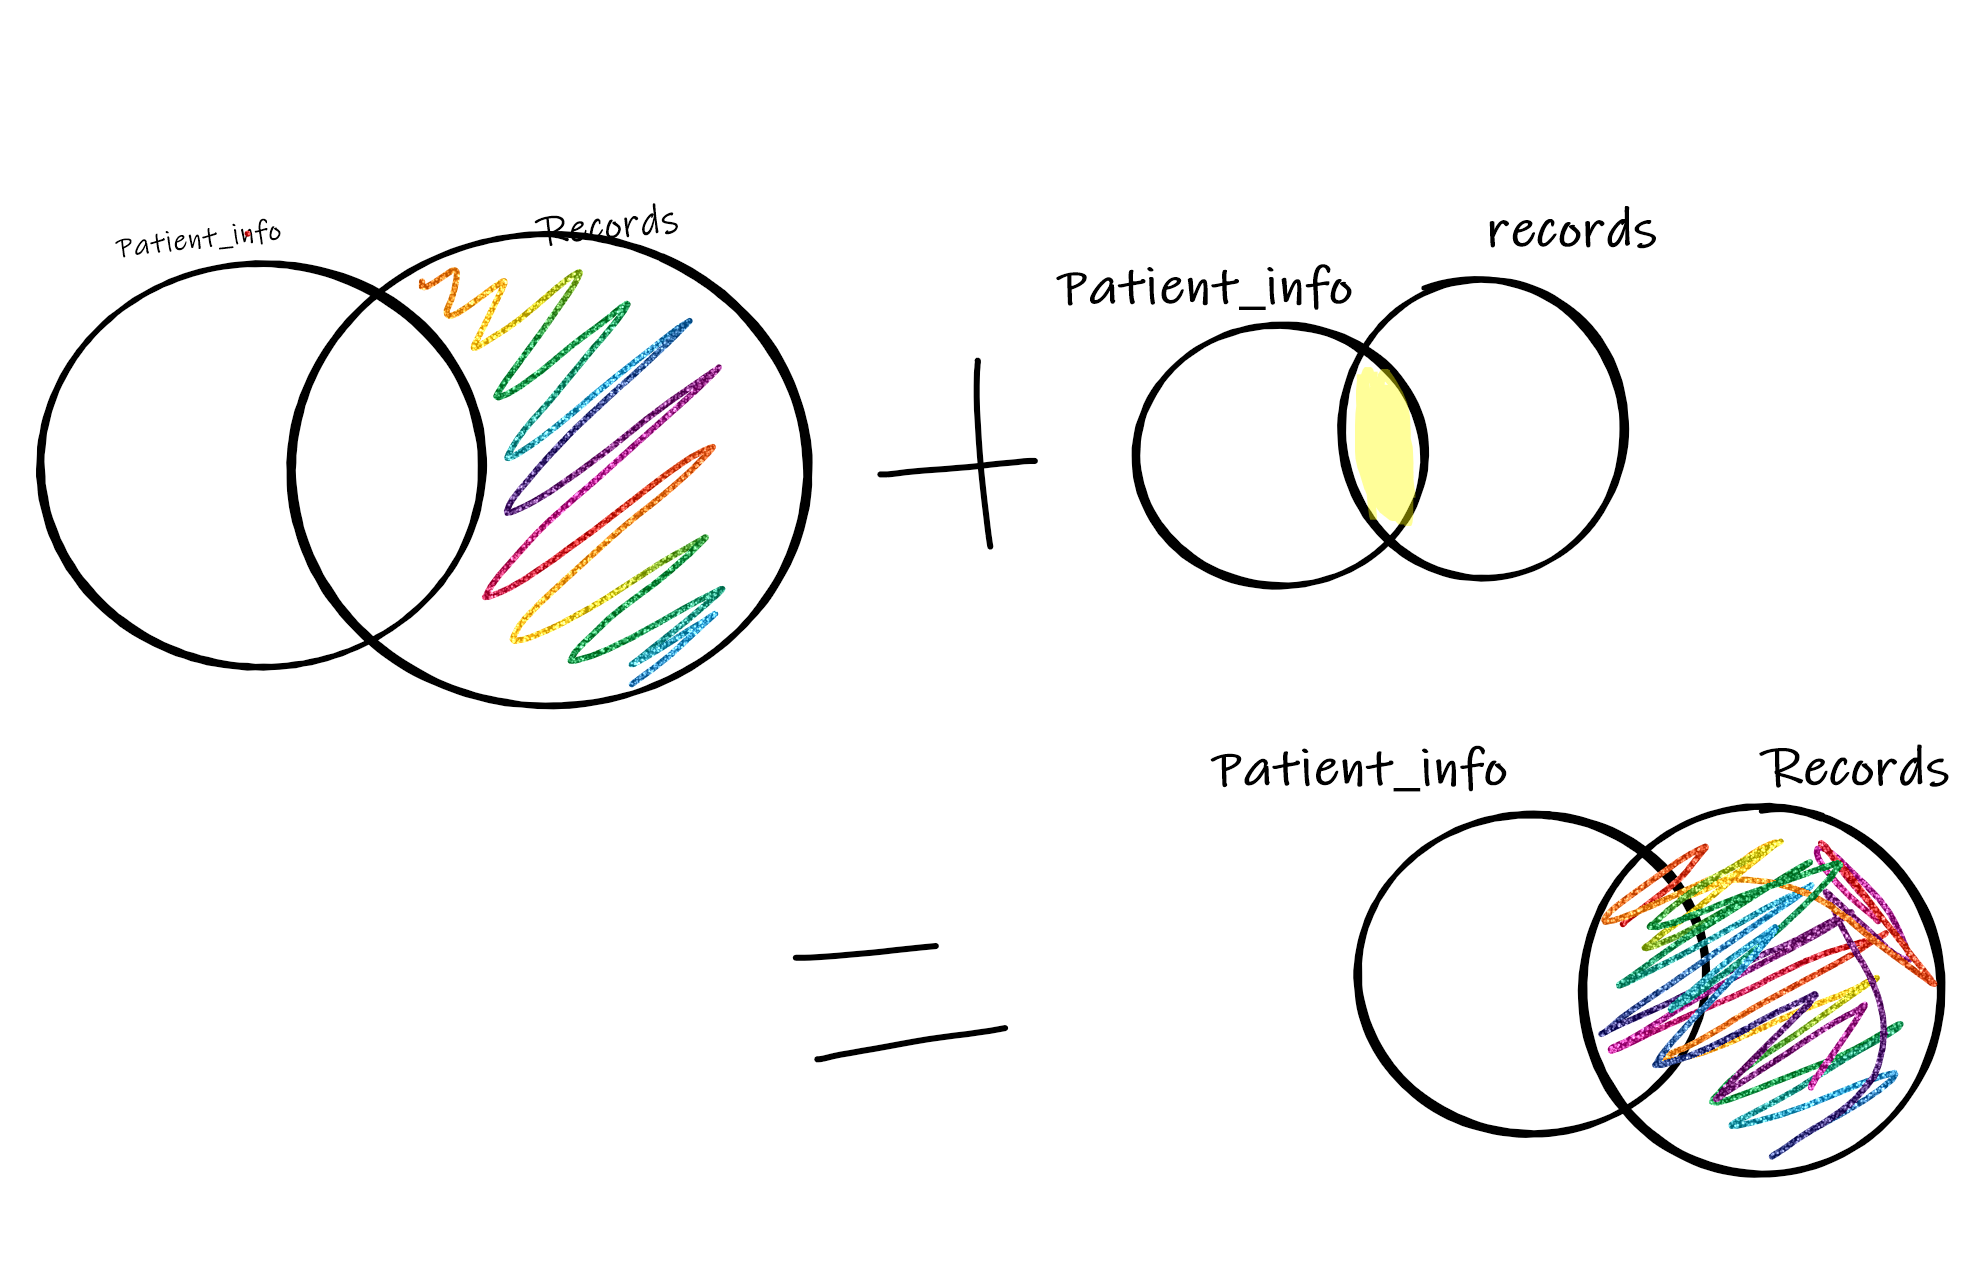 Patient_info
Records
+
Patient_info
records
=
Patient_info
Records